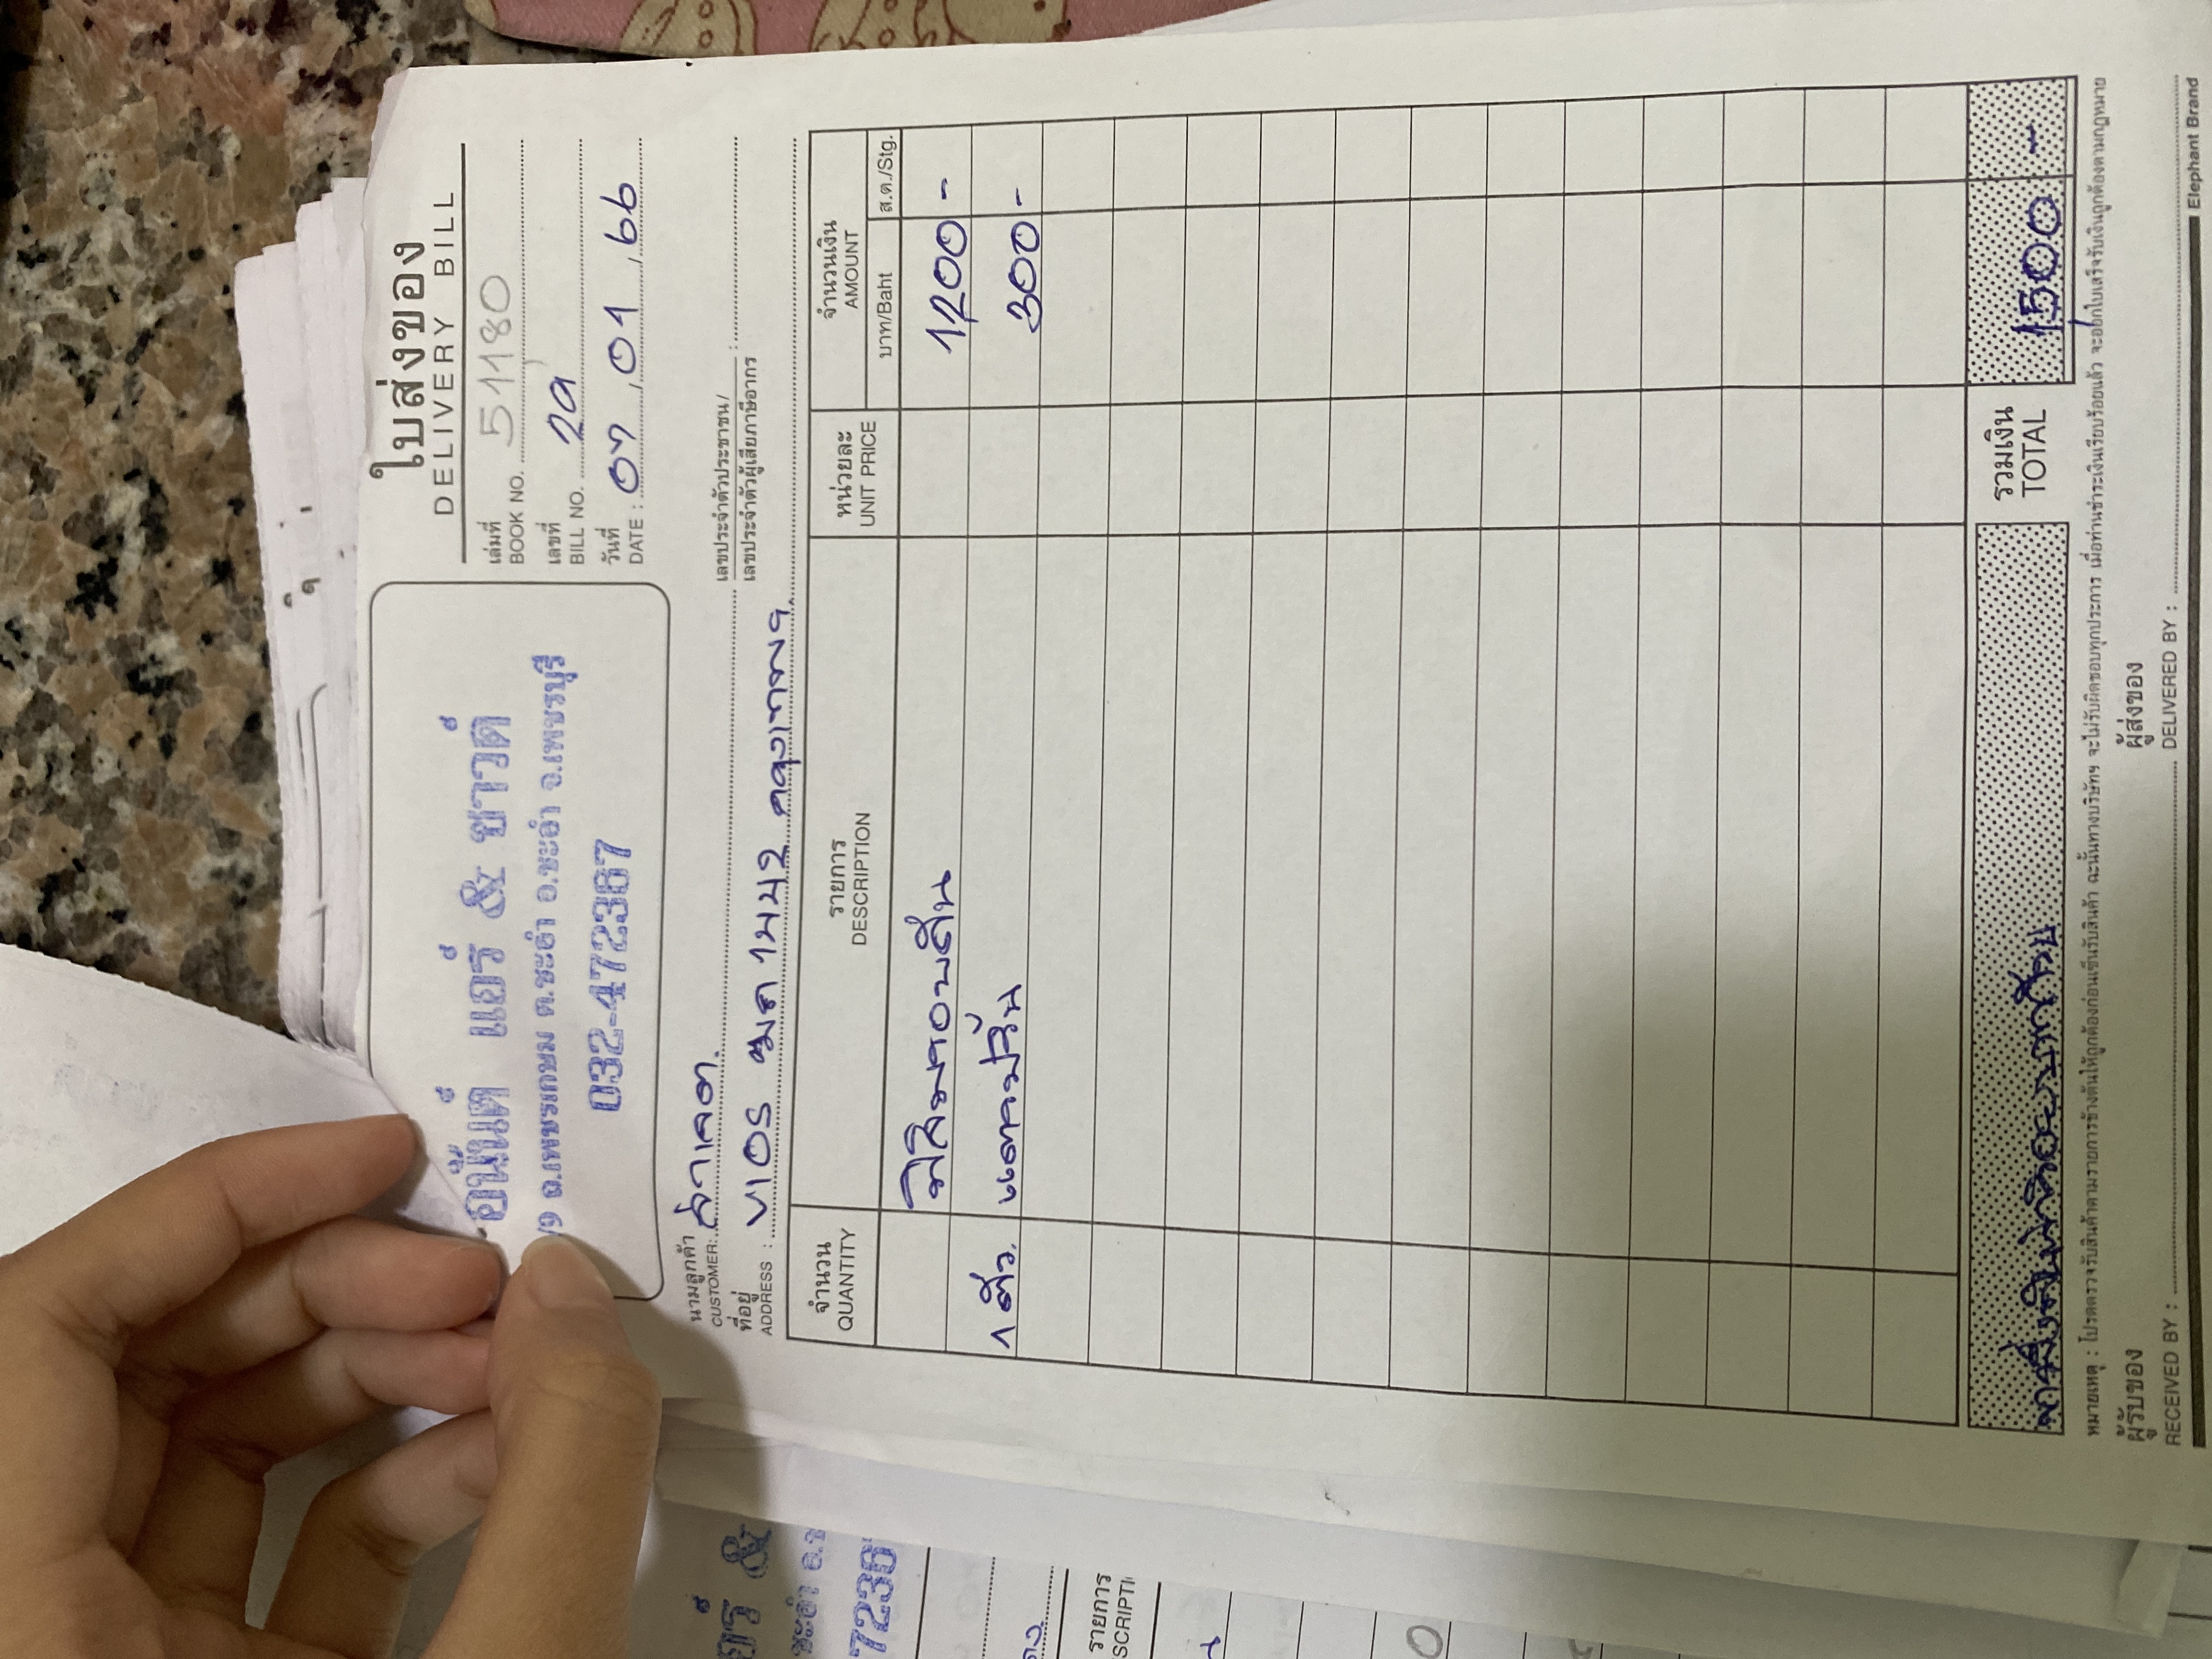 ใบส่งของ
DELIVERY BILL
อนันต์ แอร์ & ซาวด์
ถ.เพชรเกษม ต.ชะอำ อ.ชะอำ จ.เพชรบุรี
032-472387
เล่มที่
BOOK NO. 51180
เลขที่
BILL NO. 29
วันที่
DATE : 07 , 01 , 66
นามลูกค้า
CUSTOMER:
เลขประจำตัวประชาชน/
เลขประจำตัวผู้เสียภาษีอากร :
ที่อยู่
ADDRESS : VIOS
จำนวน
QUANTITY
รายการ
DESCRIPTION
หน่วยละ
UNIT PRICE
จำนวนเงิน
AMOUNT
บาท/Baht
ส.ต./Stg.
1200 -
1 ตัว. 300 -
รวมเงิน
TOTAL
1500 -
หมายเหตุ : โปรดตรวจรับสินค้าตามรายการข้างต้นให้ถูกต้องก่อนเซ็นรับสินค้า ฉะนั้นทางบริษัทฯ จะไม่รับผิดชอบทุกประการ เมื่อท่านชำระเงินเรียบร้อยแล้ว จะออกใบเสร็จรับเงินถูกต้องตามกฎหมาย
ผู้รับของ
RECEIVED BY :
ผู้ส่งของ
DELIVERED BY :
Elephant Brand
อร์ &
ชะอำ อ.ช
7238
รายการ
SCRIPTI
0